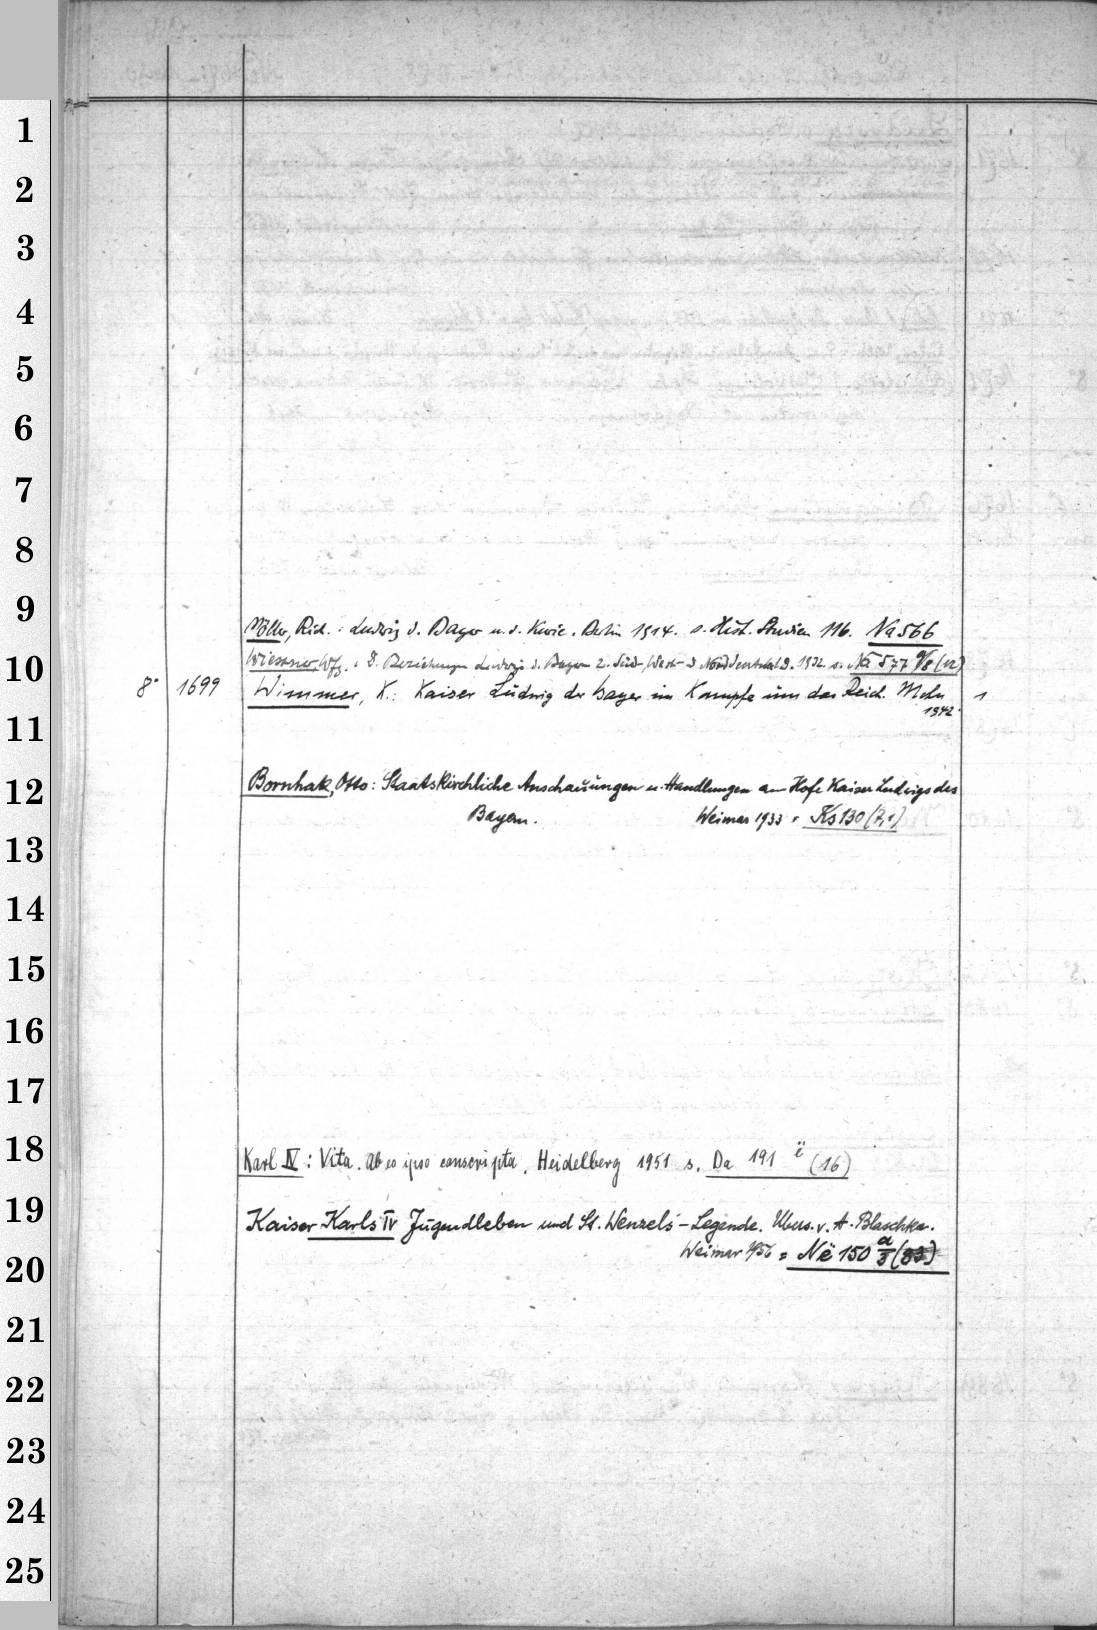 1
2
3
4
5
6
7
8
9
Möller, Rich.: Ludwig d. Bayer u. d. Kurie. Berlin 1914. s. Hist. Studien 116. Na 566
10
Wiessner, Wfg.: D. Beziehungen Ludwigs d. Bayern z. Süd-, West- u Norddeutschld. 1932 s. Na 577 (12)
8° 1699 Wimmer, K.: Kaiser Ludwig der Bayer im Kampfe um das Reich. Mchn 1
1942.
11
12
Bornhak, Otto: Staatskirchliche Anschauungen u. Handlungen am Hofe Kaiser Ludwigs des
Bayern. Weimar 1933 = Ks 130 (7,1)
13
14
15
16
17
18
Karl IV: Vita. Ab eo ipso conscripta. Heidelberg 1951 s. Da 191 ë (16)
19
Kaiser Karls IV Jugendleben und St. Wenzels-Legende. Übers. v. A. Blaschka.
20
Weimar 1956 = Në 150 a/3 (83)
21
22
23
24
25